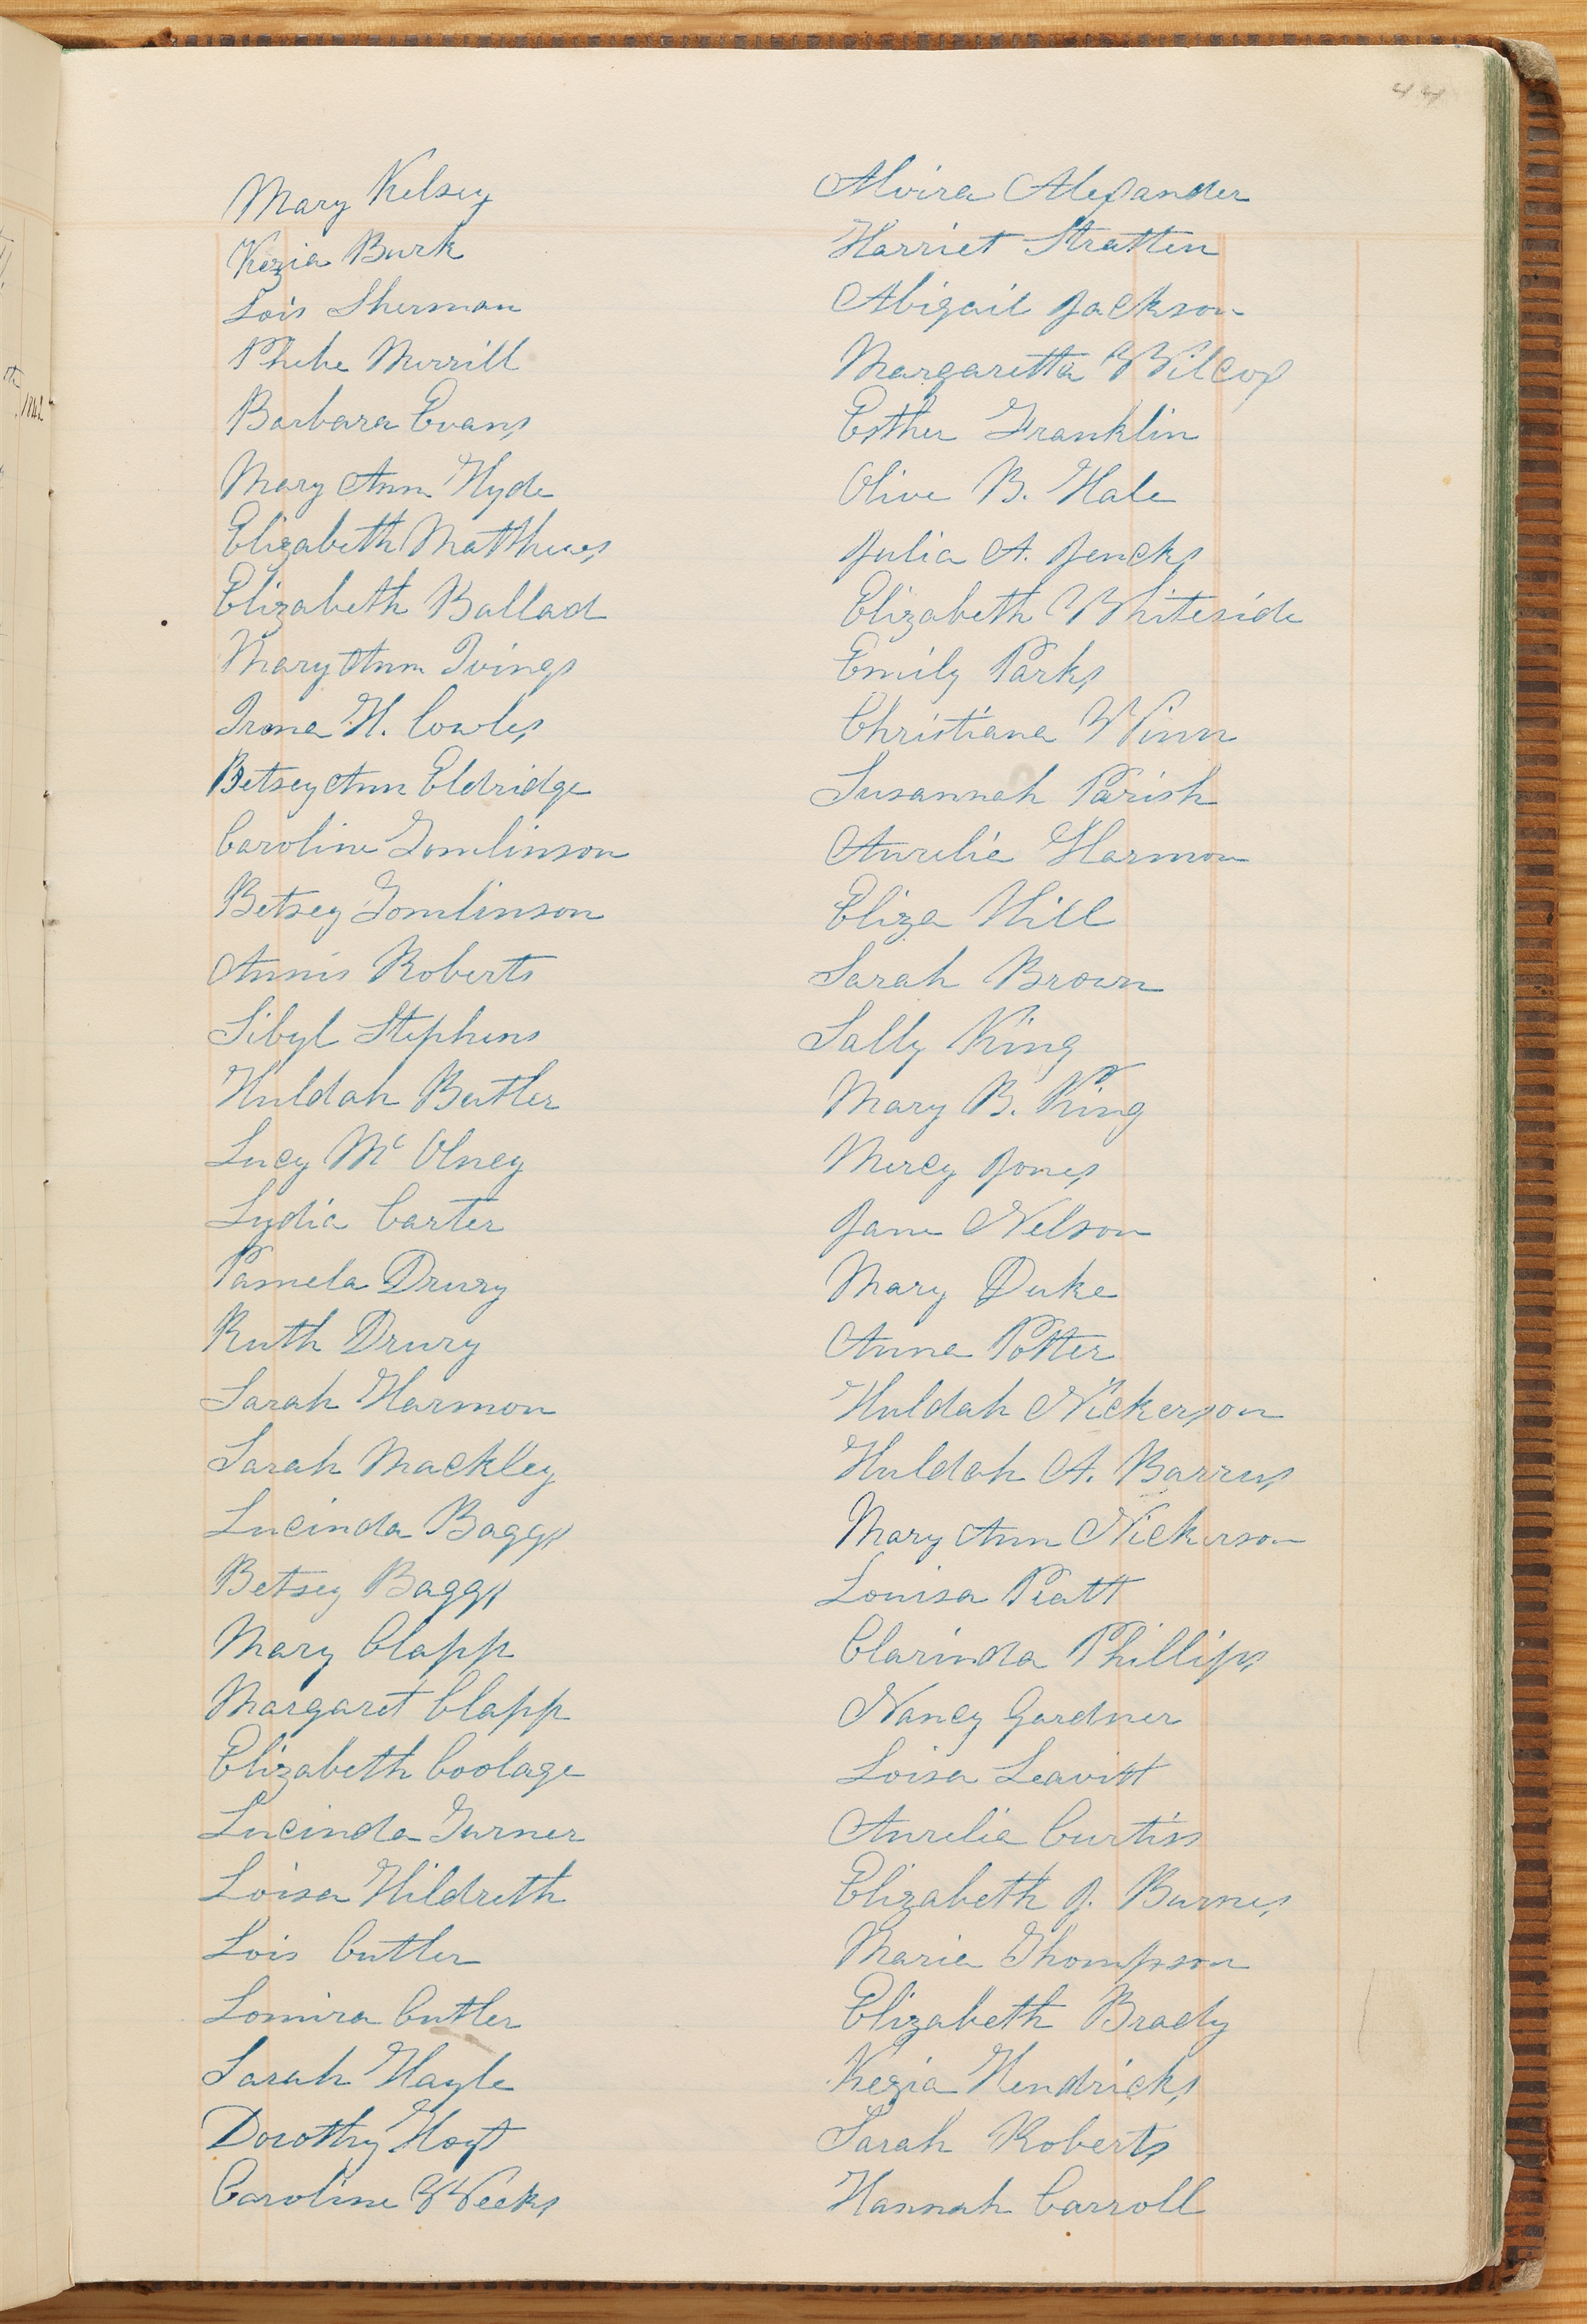 44
Mary Kelsey
Kezia Burk
Lois Sherman
Phebe Merrill
Barbara Evans
Mary Ann Hyde
Elizabeth Matthews
Elizabeth Ballad
Mary Ann Ivings
Irma H. Cowles
Betsey Ann Eldridge
Caroline Tomlinson
Betsey Tomlinson
Annis Roberts
Sibyl Stephens
Huldah Butler
Lucy Mc Olney
Lydia Carter
Pamela Drury
Ruth Drury
Sarah Harmon
Sarah Mackley
Lucinda Baggs
Betsey Baggs
Mary Clapp
Margaret Clapp
Elizabeth Coolage
Lucinda Turner
Loisa Hildreth
Lois Cutler
Lomira Cutler
Sarah Hayle
Dorothy Hoyt
Caroline Weeks
Alvira Alexander
Harriet Stratten
Abigail Jackson
Margaretta Wilcox
Esther Franklin
Olive B. Hale
Julia A. Jencks
Elizabeth Whiteside
Emily Parks
Christiana Winn
Susannah Parish
Aurelia Harmon
Eliza Hill
Sarah Brown
Sally King
Mary B. King
Mercy Jones
Jane Nelson
Mary Duke
Anna Potter
Huldah Nickerson
Huldah A. Barrus
Mary Ann Nickerson
Louisa Pratt
Clarinda Phillips
Nancy Gardner
Loisa Leavitt
Aurelia Curtiss
Elizabeth J. Burnes
Maria Thompson
Elizabeth Brady
Kezia Hendricks
Sarah Roberts
Hannah Carroll